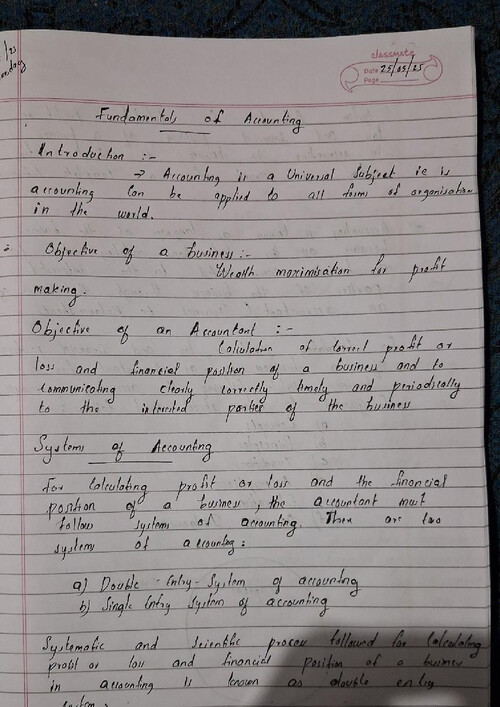 /25
classmate
Date 25/05/25
Page
Fundamentals of Accounting
Introduction :-
→ Accounting is a Universal Subject ie is
accounting can be applied to all forms of organisation
in the world.
Objective of a business:-
Wealth maximisation for profit
making.
Objective of an Accountant :-
Calculation of correct profit or
loss and financial position of a business and to
communicating clearly correctly timely and periodically
to the interested parties of the business
Systems of Accounting
For calculating profit or loss and the financial
position of a business, the accountant must
follow systems of accounting. There are two
systems of accounting:
a) Double-Entry-System of accounting
b) Single Entry System of accounting
Systematic and scientific process followed for calculating
profit or loss and financial position of a business
in accounting is known as double entry
system.